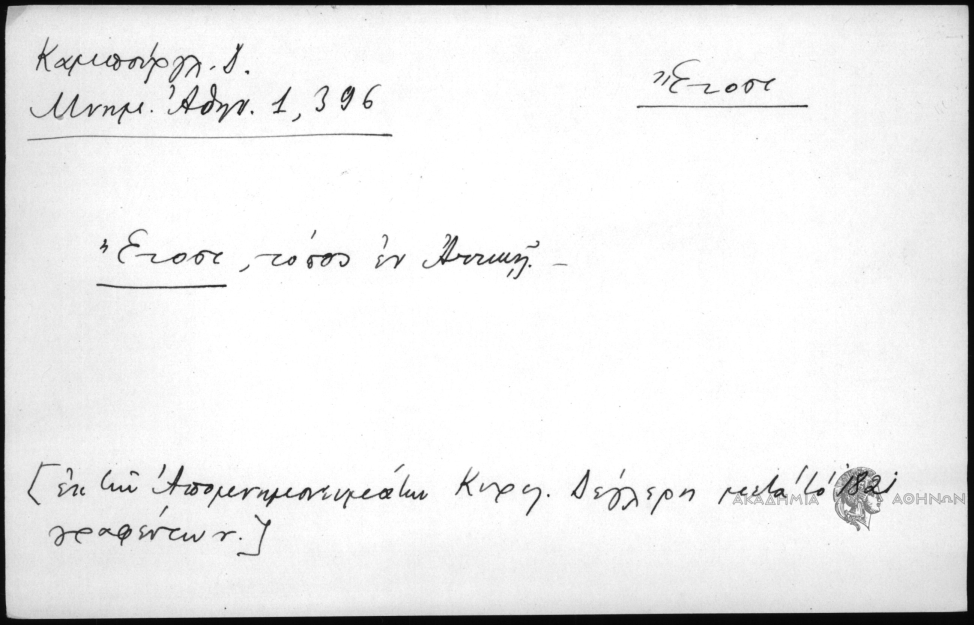 Καμπούργλ. Δ.
Μνημ. Ἀθην. 1, 396
Ἔτοσι
Ἔτοσι, τόπος ἐν Ἀττικῇ. –
[ἐκ τῶν Ἀπομνημονευμάτων Κυρ. Δέγλερη μετὰ τὸ 1821
γραφέντων.]
ΑΚΑΔΗΜΙΑ ΑΘΗΝΩΝ